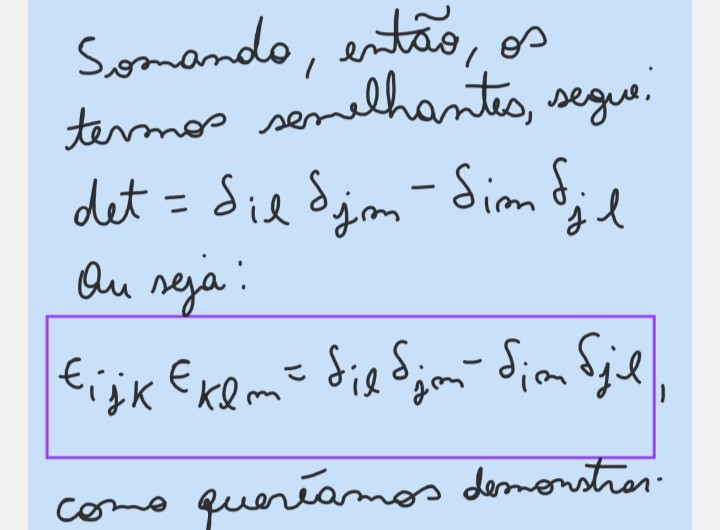 Somando, então, os
termos semelhantes, segue:
det = δ_il δ_jm - δ_im δ_jl
Ou seja:
ϵ_ijk ϵ_klm = δ_il δ_jm - δ_im δ_jl,
como queríamos demonstrar.